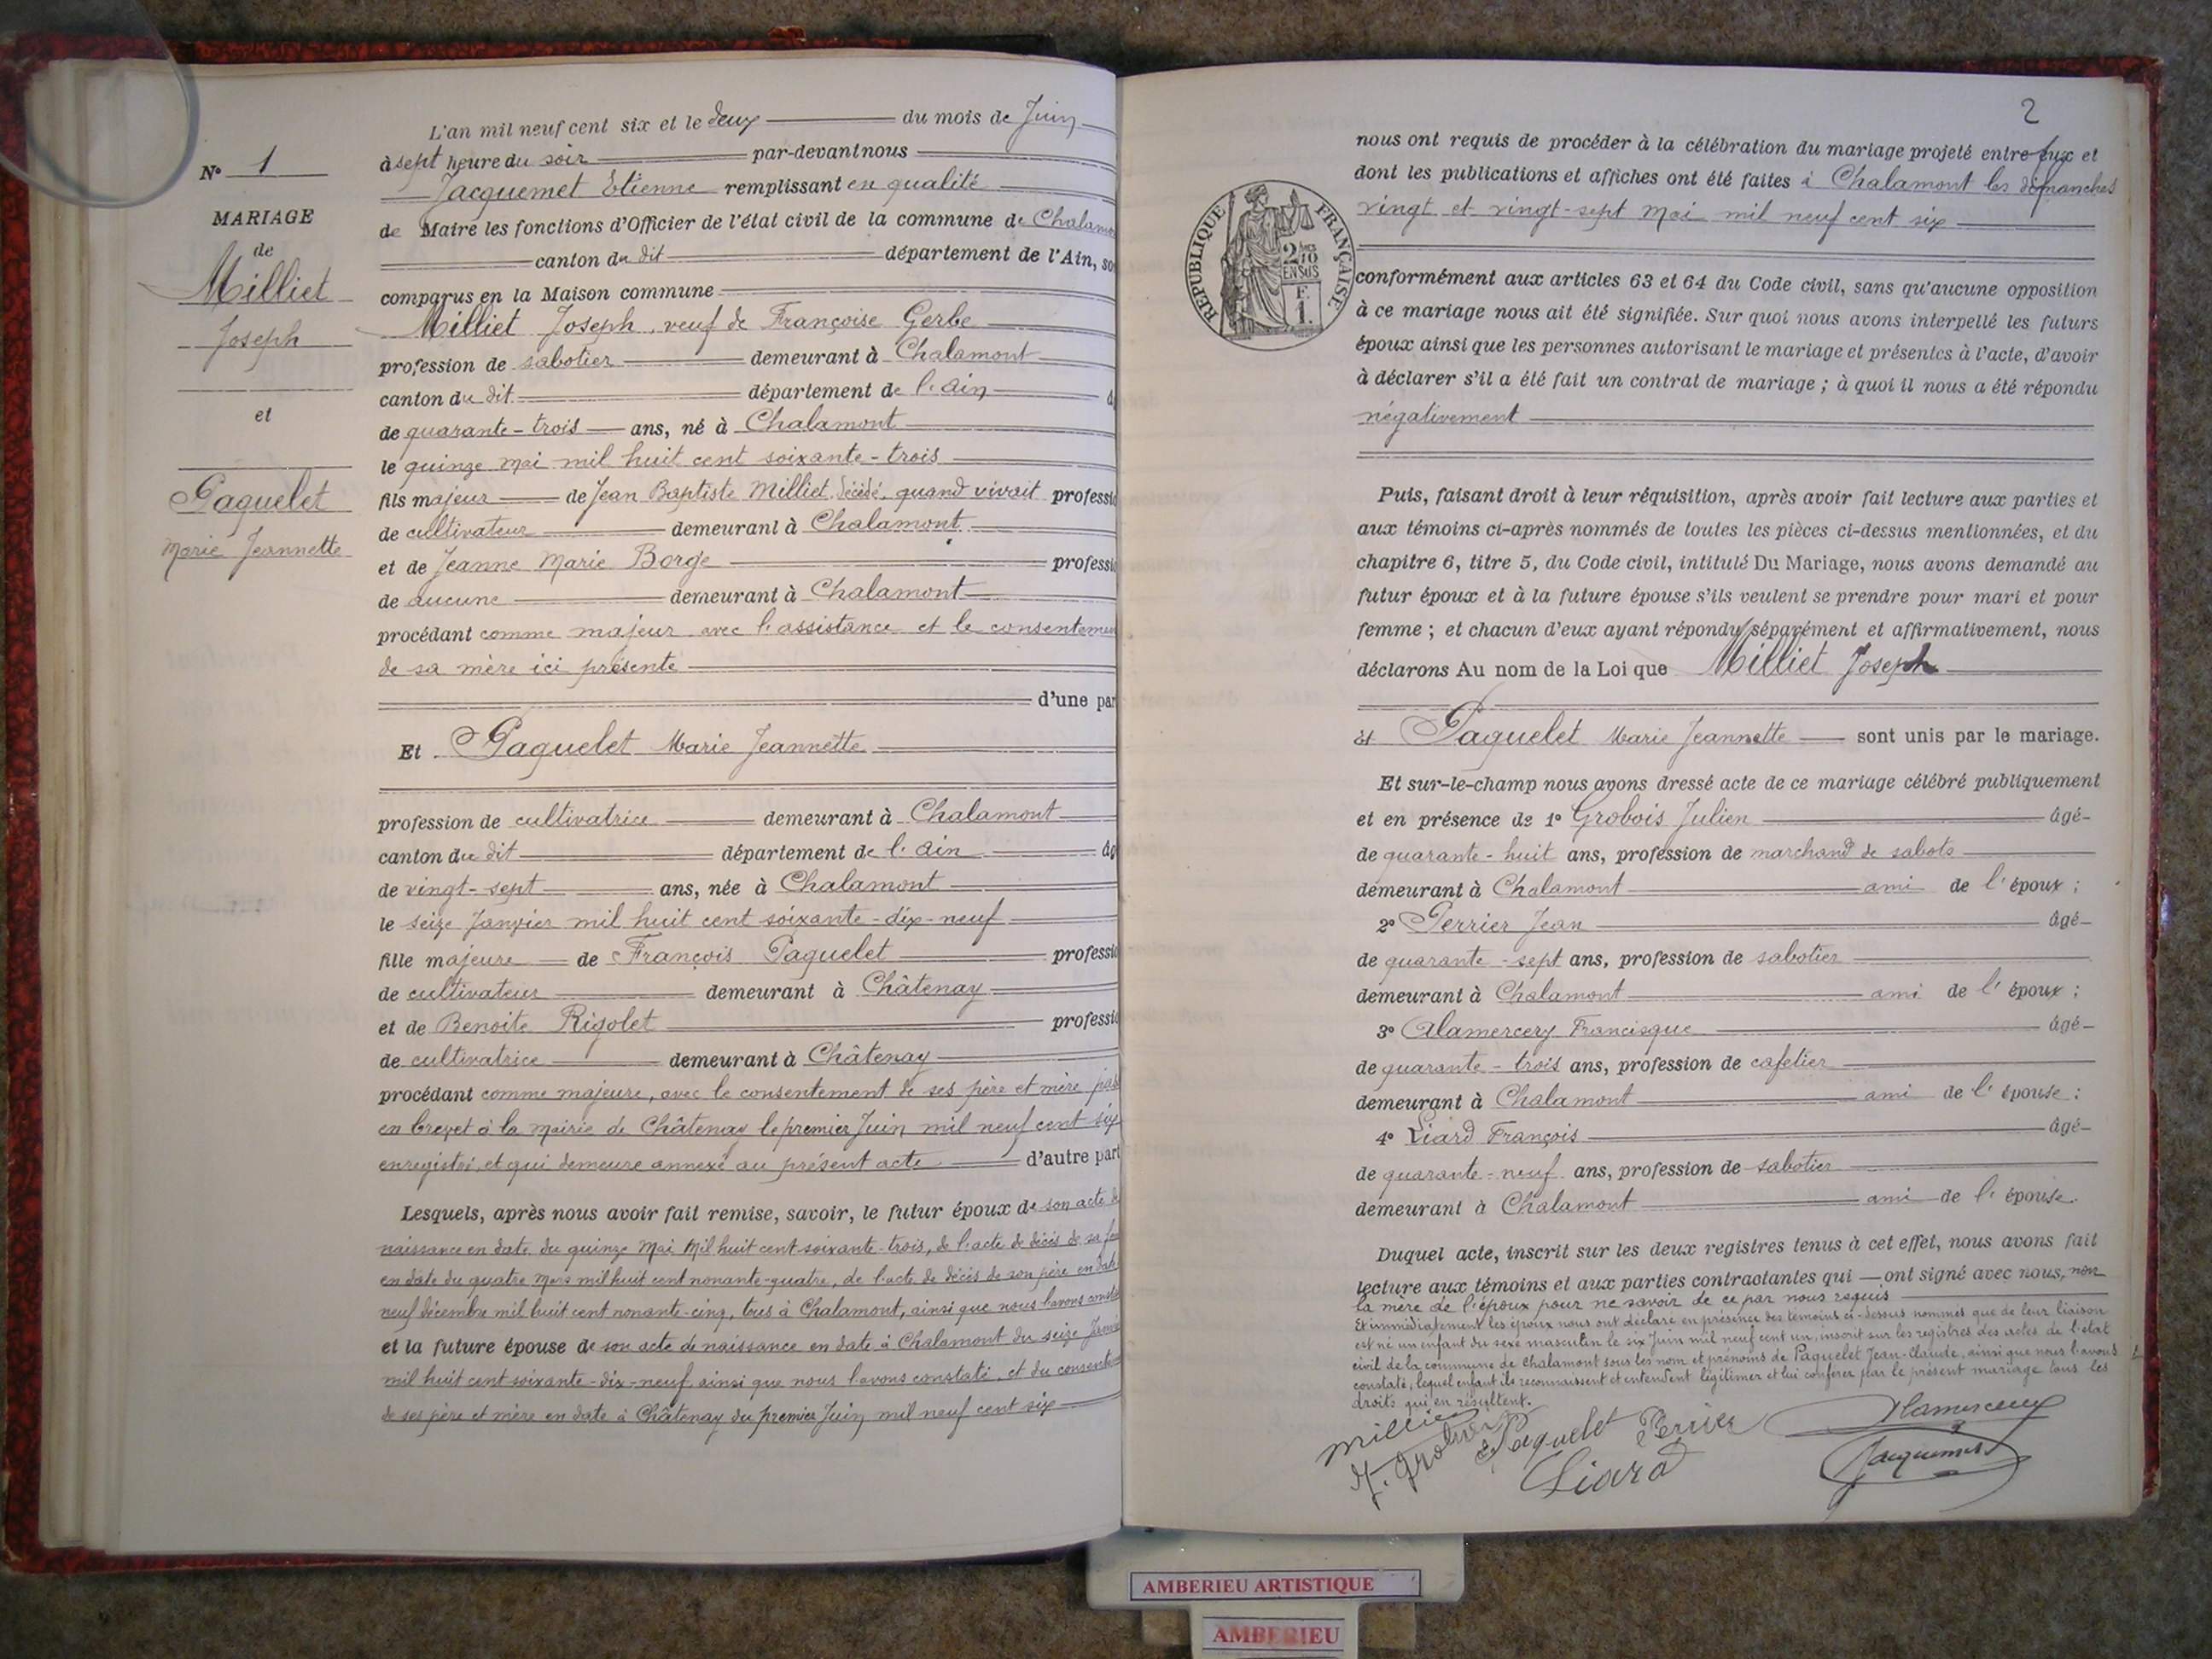 N° 1
MARIAGE
de
Milliet
Joseph
et
Paquelet
Marie Jeannette
L'an mil neuf cent six et le deux du mois de Juin
à sept heure du soir par-devant nous
Jacquemet Etienne remplissant en qualité
de Maire les fonctions d'Officier de l'état civil de la commune de Chalam
canton du dit département de l'Ain, so
comparus en la Maison commune
Milliet Joseph, veuf de Françoise Gerbe
profession de sabotier demeurant à Chalamont
canton du dit département de l'ain
de quarante-trois ans, né à Chalamont
le quinze mai mil huit cent soixante-trois
fils majeur de Jean Baptiste Milliet, décédé, quand vivait professi
de cultivateur demeurant à Chalamont
et de Jeanne Marie Borge professi
de aucune demeurant à Chalamont
procédant comme majeur avec l'assistance et le consentemen
de sa mère ici présente
d'une par
Et Paquelet Marie Jeannette
profession de cultivatrice demeurant à Chalamont
canton du dit département de l'ain âg
de vingt-sept ans, née à Chalamont
le seize Janvier mil huit cent soixante-dix-neuf
fille majeure de François Paquelet professi
de cultivateur demeurant à Châtenay
et de Benoite Rigolet professi
de cultivatrice demeurant à Châtenay
procédant comme majeure, avec le consentement de ses père et mère
en brevet à la mairie de Châtenay le premier Juin mil neuf cent six
enregistré, et qui demeure annexé au présent acte d'autre part
Lesquels, après nous avoir fait remise, savoir, le futur époux de son acte de
naissance en date du quinze Mai Mil huit cent soixante-trois, de l'acte de décès de sa
en date du quatre mars mil huit cent nonante-quatre, de l'acte de décès de son père en date
neuf décembre mil huit cent nonante-cinq, tous à Chalamont, ainsi que nous l'avons
et la future épouse de son acte de naissance en date à Chalamont du seize
mil huit cent soixante-dix-neuf ainsi que nous l'avons constaté, et du
de ses père et mère en date à Châtenay du premier Juin mil neuf cent six
2
nous ont requis de procéder à la célébration du mariage projeté entre eux et
dont les publications et affiches ont été faites à Chalamont les dimanches
vingt et vingt-sept mai mil neuf cent six
RÉPUBLIQUE FRANÇAISE
2/10
EN SUS
F.
1.
conformément aux articles 63 et 64 du Code civil, sans qu'aucune opposition
à ce mariage nous ait été signifiée. Sur quoi nous avons interpellé les futurs
époux ainsi que les personnes autorisant le mariage et présentes à l'acte, d'avoir
à déclarer s'il a été fait un contrat de mariage ; à quoi il nous a été répondu
négativement
Puis, faisant droit à leur réquisition, après avoir fait lecture aux parties et
aux témoins ci-après nommés de toutes les pièces ci-dessus mentionnées, et du
chapitre 6, titre 5, du Code civil, intitulé Du Mariage, nous avons demandé au
futur époux et à la future épouse s'ils veulent se prendre pour mari et pour
femme ; et chacun d'eux ayant répondu séparément et affirmativement, nous
déclarons Au nom de la Loi que Milliet Joseph
et Paquelet Marie Jeannette sont unis par le mariage.
Et sur-le-champ nous avons dressé acte de ce mariage célébré publiquement
et en présence de 1° Grobois Julien âgé
de quarante-huit ans, profession de marchand de sabots
demeurant à Chalamont ami de l'époux ;
2° Perrier Jean âgé
de quarante-sept ans, profession de sabotier
demeurant à Chalamont ami de l'époux ;
3° Alamercery Francisque âgé
de quarante-trois ans, profession de cafetier
demeurant à Chalamont ami de l'épouse ;
4° Liard François âgé
de quarante-neuf ans, profession de sabotier
demeurant à Chalamont ami de l'épouse.
Duquel acte, inscrit sur les deux registres tenus à cet effet, nous avons fait
lecture aux témoins et aux parties contractantes qui ont signé avec nous, non
la mère de l'époux pour ne savoir de ce par nous requis
Et immédiatement les époux nous ont déclaré en présence des témoins ci-dessus nommés que de leur liaison
est né un enfant du sexe masculin le six Juin mil neuf cent un, inscrit sur les registres des actes de l'état
civil de la commune de Chalamont sous les nom et prénoms de Paquelet Jean-Claude, ainsi que nous l'avons
constaté, lequel enfant ils reconnaissent et entendent légitimer et lui conférer par le présent mariage tous les
droits qui en résultent.
Milliet
J. Grobois
Paquelet
Perrier
Alamercery
Liard
Jacquemet
AMBERIEU ARTISTIQUE
AMBERIEU